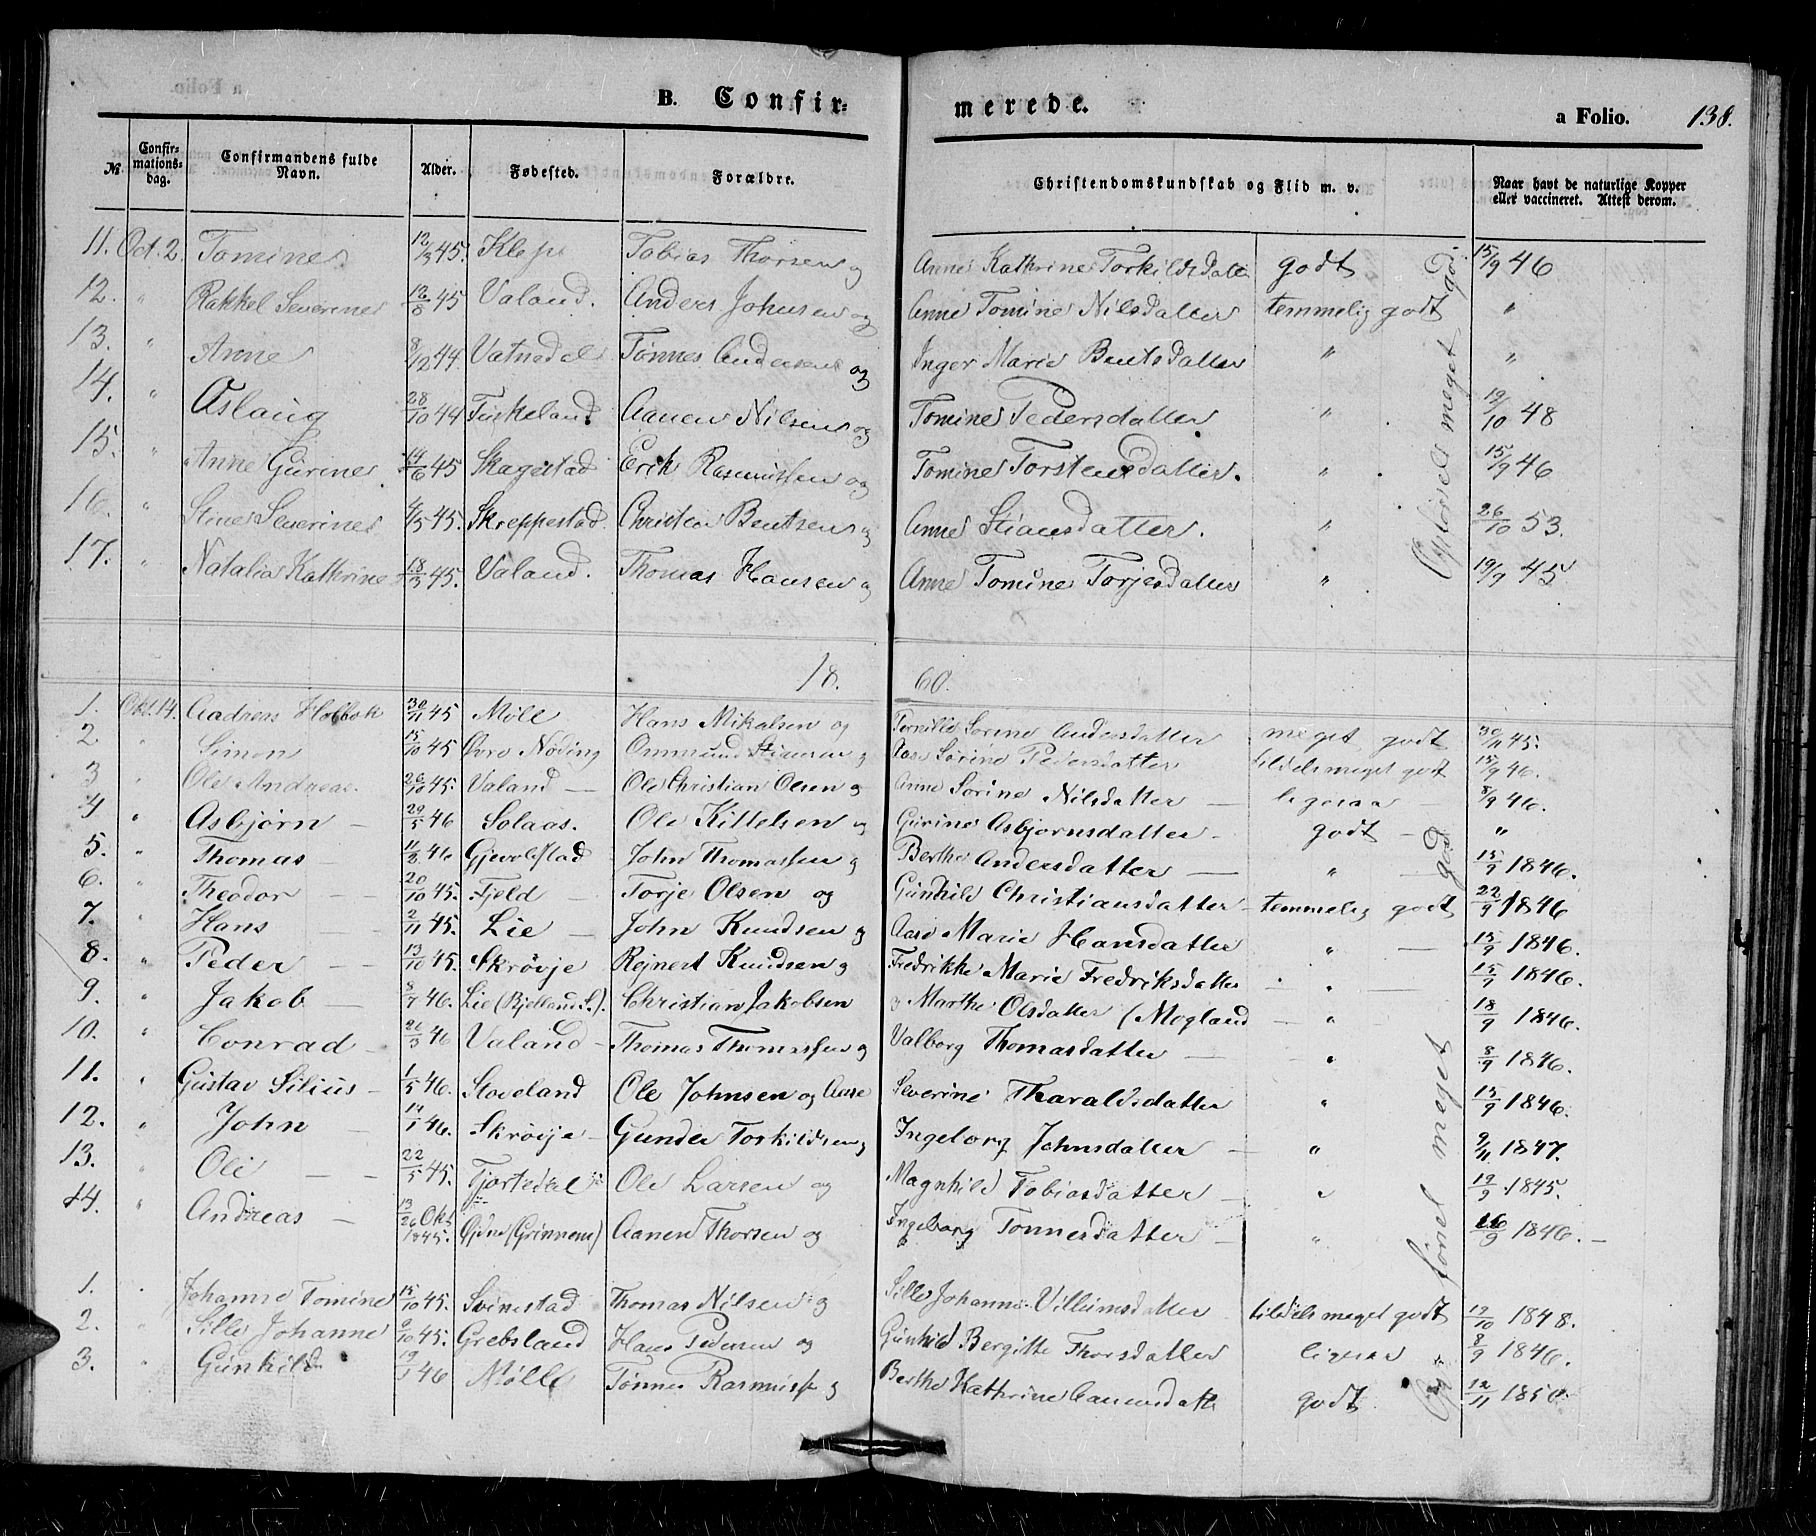 B. Confir-merede. a Folio. 138.
No. Confir-mations-dag. Confirmandens fulde Navn. Alder. Fødested. Forældre. Christendomskundskab og Flid m. v. Naar havt de naturlige Kopper eller vaccineret. Attest derom.
11. Oct. 2. Tomine 12/3 45. Klep Tobias Thorsen og Anne Kathrine Torkildsdatt godt 15/9 46
12. " Rakkel Severine 12/8 45 Valand. Anders Johnsen og Anne Tomine Nilsdatter temmelig godt "
13. " Anne 8/12 44 Vatnedal Tønnes Andersen og Inger Marie Bentsdatter " "
14. " Aslaug 28/10 44 Tuskeland Aanen Nilsen og Tomine Pedersdatter " 19/10 48
15. " Anne Gurine 14/6 45 Skagestad Erik Rasmussen og Tomine Torstensdatter. " 15/9 46
16. " Stine Severine 4/5 45. Skreppestad. Christen Bentsen og Anne Stiansdatter. " 26/10 53.
17. " Natalia Kathrine 18/3 45. Valand. Thomas Hansen og Anne Tomine Torjesdatter " 19/9 45
Opførsel meget god.
18. 60.
1. Okt. 14. Aadress Holbok 30/11 45 Møll Hans Mikalsen og Tornilie Sorine Andersdatter meget godt 30/11 45.
2. " Simon 15/10 45 Øvre Nøding Ommund Stiansen og Aase Sørine Pedersdatter tildels meget godt 15/9 46.
3 " Ole Andreas. 26/10 45. Valand — Ole Christian Olsen og Anne Sorine Nilsdatter — ligesaa — 8/9 46.
4 " Asbjørn — 29/5 46 Solaas. Ole Kittelsen og Gurine Asbjørnsdatter — godt — "
5. " Thomas 11/2 46 Gjevolstad John Thomassen og Berthe Andersdatter — " — 15/9 1846.
6. " Theodor — 20/10 45. Fjeld — Torje Olsen og Gunhild Christiansdatter — temmelig godt 22/9 1846
7. " Hans — 2/11 45. Lie — John Knudsen og Aase Marie Hansdatter " — 15/9 1846.
8. " Peder — 13/10 45. Skrøvje Rejnert Knudsen og Fredrikke Marie Fredriksdatter — " — 15/9 1846.
9. " Jakob — 8/7 46. Lie (Bjelland S.). Christian Jakobsen og Marthe Olsdatter (Mogland — " — 18/9 1846.
10. " Conrad — 26/3 46 Valand — Thomas Thomassen og Valborg Thomasdatter — " 8/9 1846.
11. " Gustav Silius — 1/5 46. Stoveland Ole Johnsen og Aase Severine Tharaldsdatter " 15/9 1846.
12. " John — 14/1 46. Skrøvje — Gunder Torkildsen og Ingeborg Johnsdatter — " 9/11 1847.
13. " Ole — 22/5 45. Fjortedal Ole Larsen og Magnhild Tobiasdatter — " 19/9 1845.
14. " Andreas — 13/26 Okt 1845. Øjdne (Grinnem) Aanen Thorsen og Ingeborg Tønnesdatter — " 26/9 1846. —
1. " Johanne Tomine 15/10 45. Svinestad Thomas Nilsen og Sille Johanne Villumsdatter tildels meget godt 12/10 1848.
2. " Sille Johanne 9/10 45. Grebsland Hans Pedersen og Gunhild Bergitte Thorsdatter ligesaa " 8/9 1846.
3. " Gunhild 19/1 46 Mølle Tønnes Rasmuss og Berthe Kathrine Aanensdatte godt 12/11 1850
Opførsel meget god